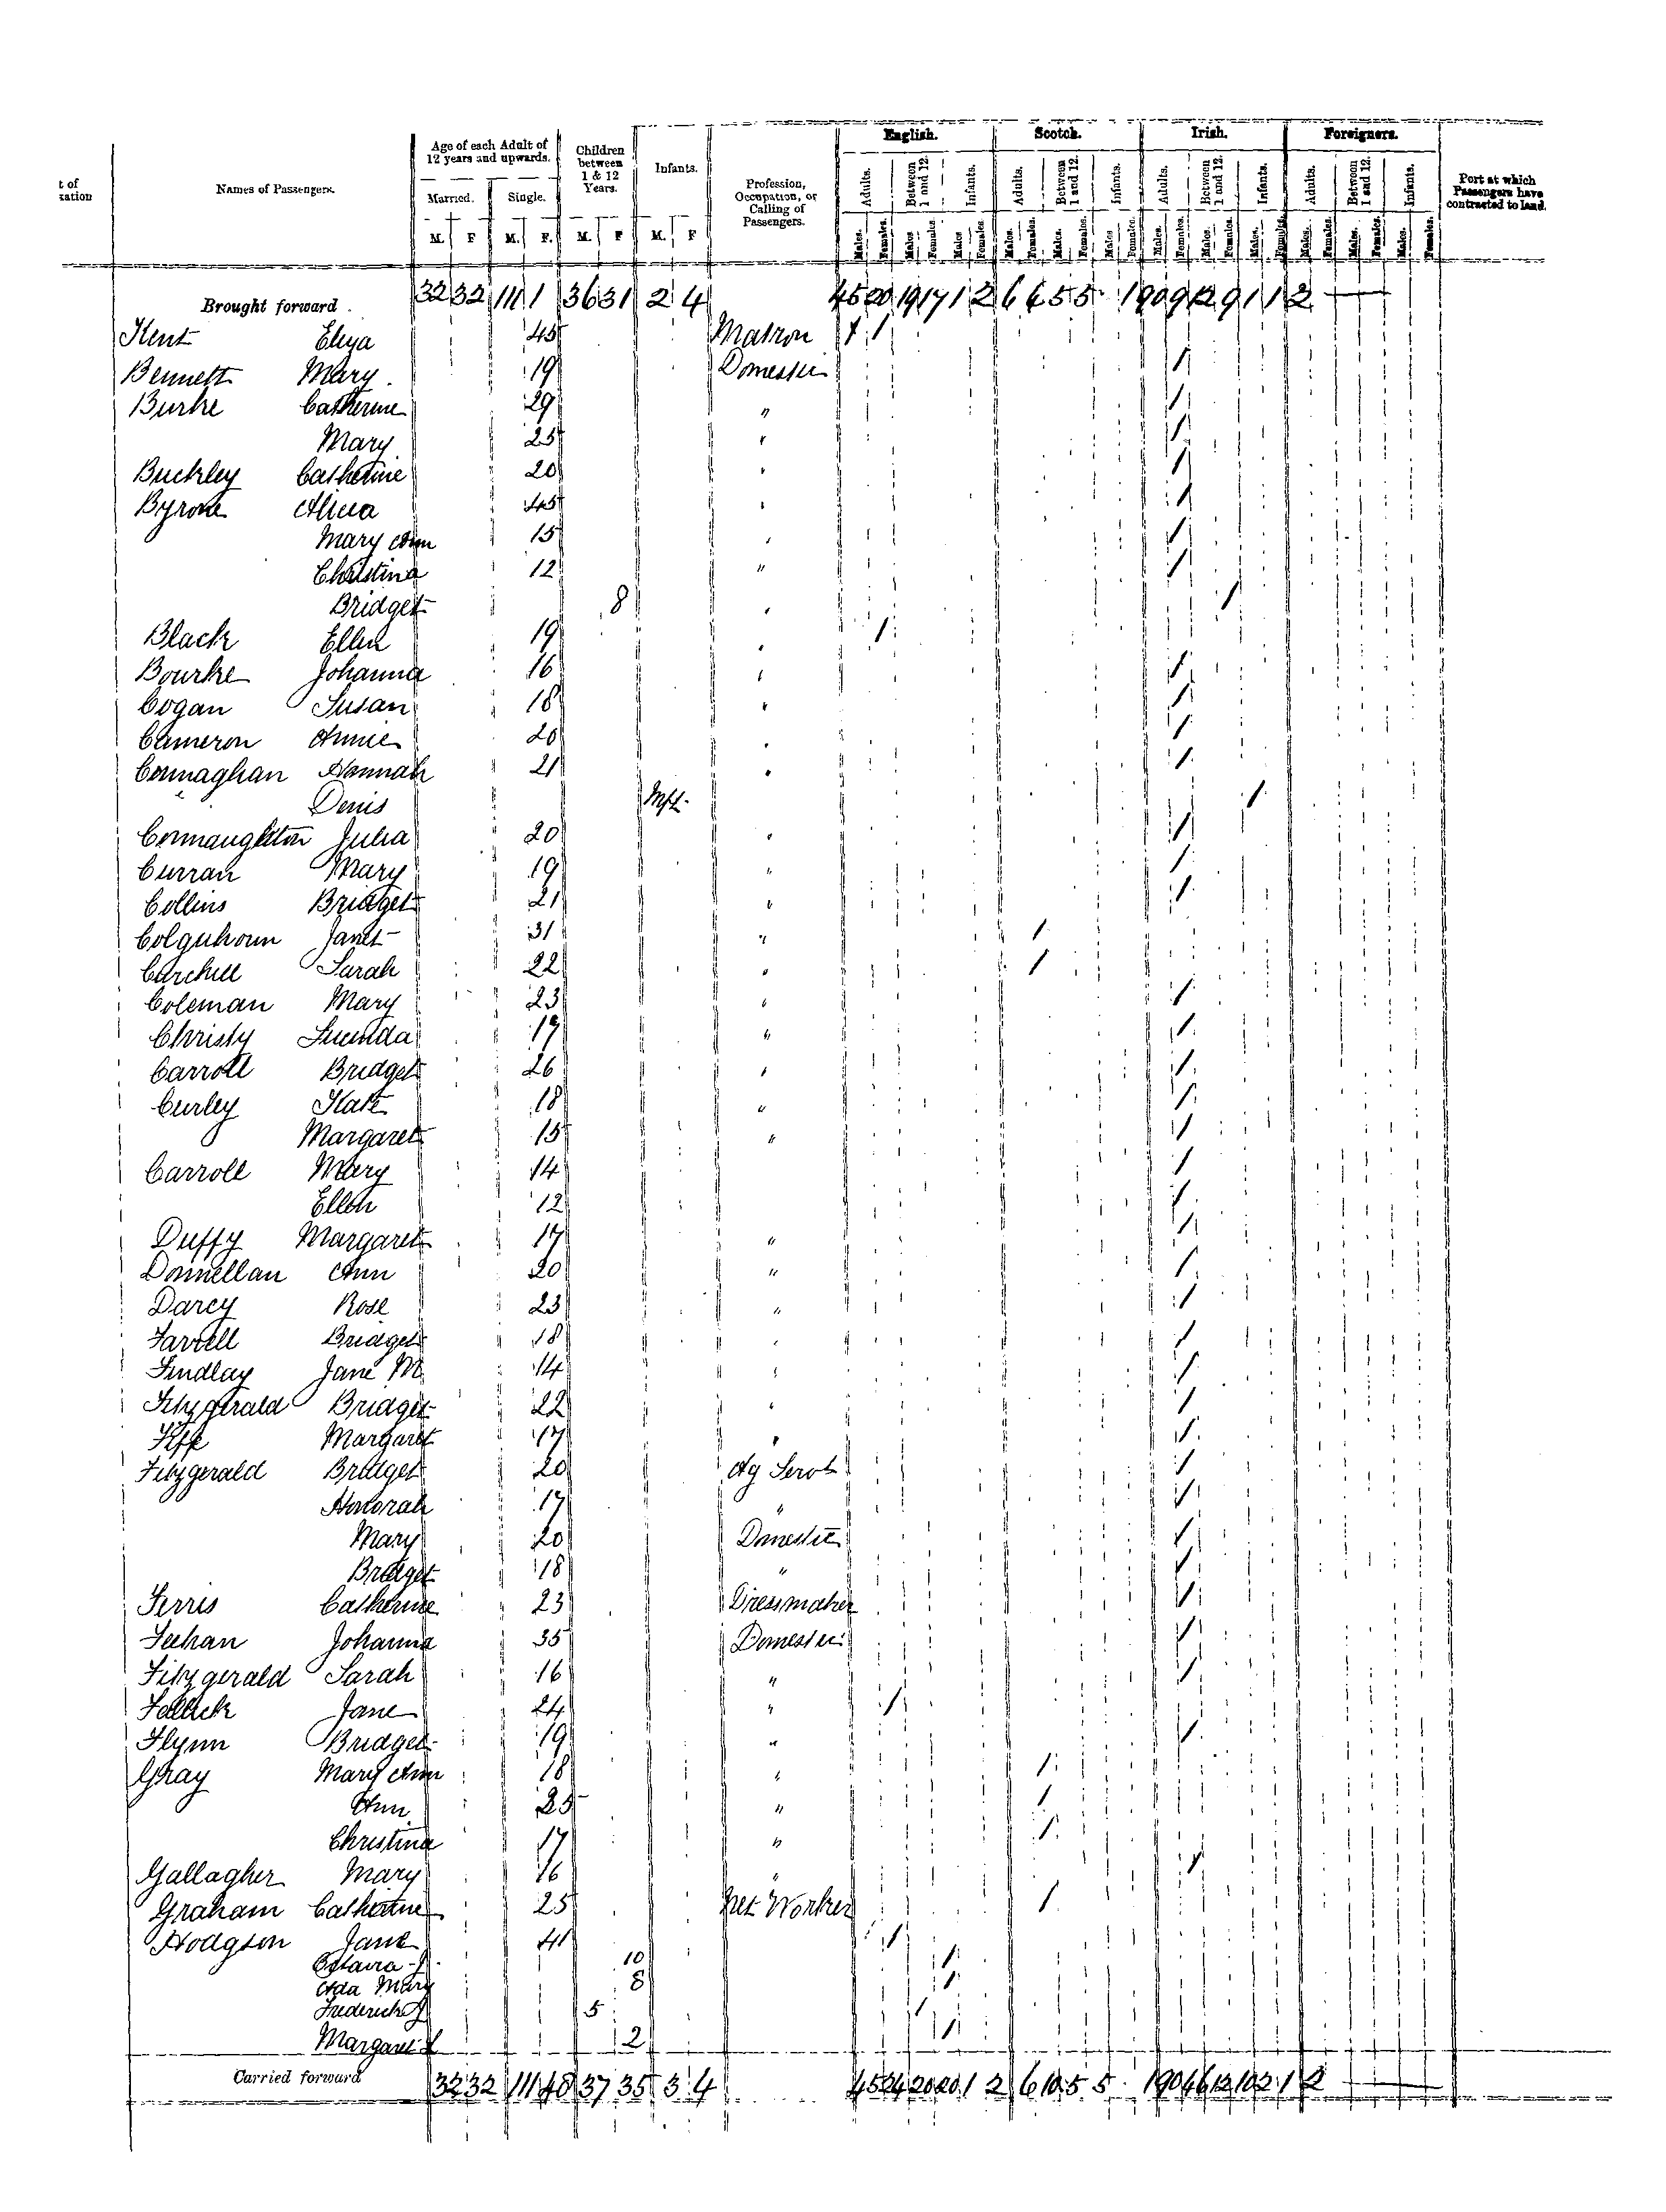 t of
zation
Names of Passengers.
Age of each Adult of 12 years and upwards.
Married. Single.
M. F M. F.
Children between 1 & 12 Years.
M. F
Infants.
M. F
Profession, Occupation, or Calling of Passengers.
English. Scotch. Irish. Foreigners.
Adults. Between 1 and 12. Infants. Adults. Between 1 and 12. Infants. Adults. Between 1 and 12. Infants. Adults. Between 1 and 12. Infants.
Males. Females. Males. Females. Males. Females. Males. Females. Males. Females. Males. Females. Males. Females. Males. Females. Males. Females. Males. Females. Males. Females. Males. Females.
Port at which Passengers have contracted to land.
Brought forward . 32 32 111 1 36 31 2 4 45 20 19 17 1 2 6 6 5 5 190 9 12 9 1 1 2
Kent Eliza 45 Matron 1
Bennett Mary . 19 Domestic 1
Burke Catherine 29 " 1
Mary 25 " 1
Buckley Catherine 20 " 1
Byrone Alicia 45 " 1
Mary Ann 15 " 1
Christina 12 " 1
Bridget 8 " 1
Black Ellen 19 " 1
Bourke Johanna 16 " 1
Cogan Susan 18 " 1
Cameron Annie 20 " 1
Connaghan Hannah 21 " 1
Denis Inft. 1
Connaughton Julia 20 " 1
Curran Mary 19 " 1
Collins Bridget 21 " 1
Colquhoun Janet 31 " 1
Carchill Sarah 22 " 1
Coleman Mary 23 " 1
Christy Lucinda 19 " 1
Carroll Bridget 26 " 1
Curley Kate 18 " 1
Margaret 15 " 1
Carroll Mary 14 1
Ellen 12 1
Duffy Margaret 17 " 1
Donnellan Ann 20 " 1
Darcy Rose 23 " 1
Farrell Bridget 18 " 1
Findlay Jane M 14 " 1
Fitzgerald Bridget 22 " 1
Margaret 17 " 1
Fitzgerald Bridget 20 Ag Servt 1
Honorah 17 " 1
Mary 20 Domestic 1
Bridget 18 " 1
Ferris Catherine 23 Dressmaker 1
Feehan Johanna 35 Domestic 1
Fitzgerald Sarah 16 " 1
Fallick Jane 24 " 1
Flynn Bridget 19 " 1
Gray Mary Ann 18 " 1
Ann 25 " 1
Christina 17 " 1
Gallagher Mary 16 " 1
Graham Catherine 25 Net Worker 1
Hodgson Jane 41 1
Octavia J. 10 1
Ada Mary 8 1
Frederick J 5 1
Margaret 2 1
Carried forward 32 32 111 48 37 35 3 4 45 24 20 20 1 2 6 10 5 5 190 46 12 10 2 1 2